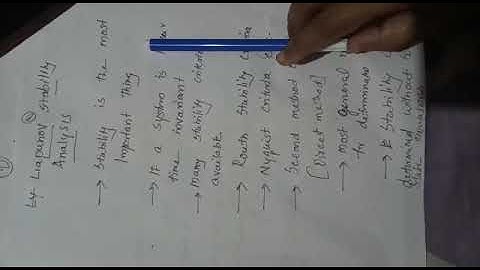 Ly- Liapunov stability
Analysis
→ Stability is the most
Important thing
→ If a system is
time invariant
→ Many stability criteria
available.
→ Routh stability
→ Nyquist criteria
→ Second method
[Direct method]
→ Most general
to determine
→ Stability
determined without
state